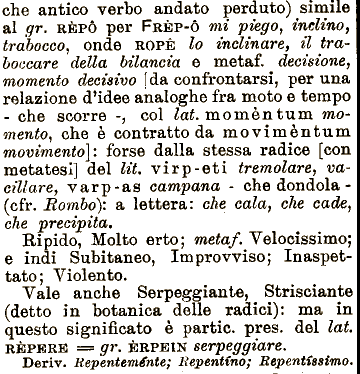 che antico verbo andato perduto) simile
al gr. RÈPÔ per FRÈP-Ô mi piego, inclino,
trabocco, onde ROPÈ lo inclinare, il tra-
boccare della bilancia e metaf. decisione,
momento decisivo [da confrontarsi, per una
relazione d'idee analoghe fra moto e tempo
- che scorre -, col lat. momèntum mo-
mento, che è contratto da movimèntum
movimento]: forse dalla stessa radice [con
metatesi] del lit. virp-eti tremolare, va-
cillare, varp-as campana - che dondola -
(cfr. Rombo): a lettera: che cala, che cade,
che precipita.
Ripido, Molto erto; metaf. Velocissimo;
e indi Subitaneo, Improvviso; Inaspet-
tato; Violento.
Vale anche Serpeggiante, Strisciante
(detto in botanica delle radici): ma in
questo significato è partic. pres. del lat.
RÈPERE = gr. ÈRPEIN serpeggiare.
Deriv. Repenteménte; Repentíno; Repentíssimo.